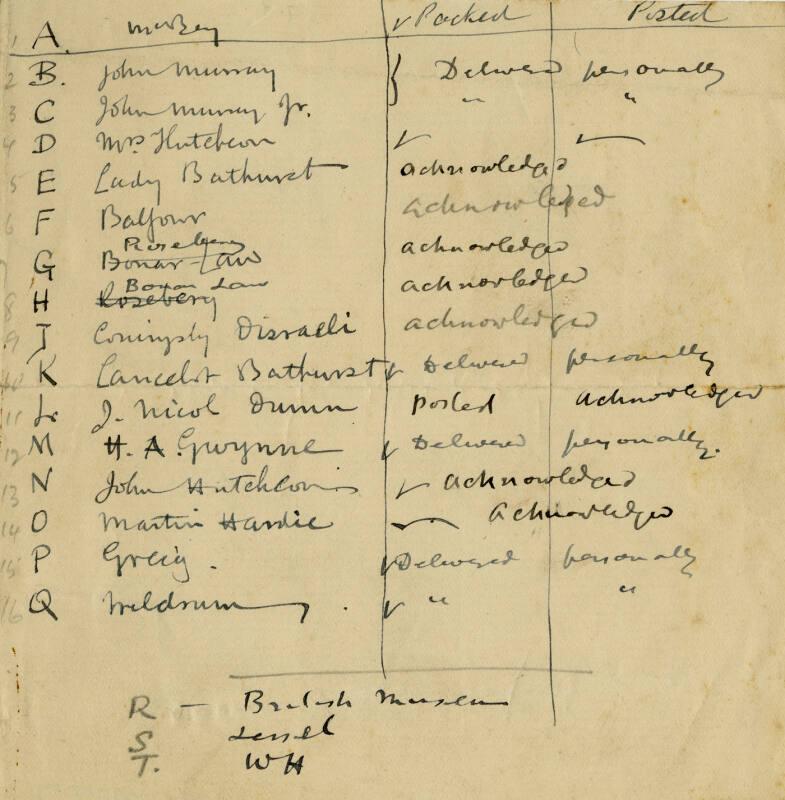 ✓ Packed Posted
1 A. McBey
2 B. John Murray } Delivered personally
3 C John Murray Jr. " "
4 D Mrs Hutcheon ✓ ✓
5 E Lady Bathurst acknowledged
6 F Balfour acknowledged
Rosebery
7 G Bonar Law acknowledged
Bonar Law
8 H Rosebery acknowledged
9 J Coningsby Disraeli acknowledged
10 K Lancelot Bathurst ✓ Delivered personally
11 L. J. Nicol Dunn posted acknowledged
12 M H. A. Gwynne ✓ Delivered personally.
13 N John Hutcheon ✓ acknowledged
14 O Martin Hardie ✓ acknowledged
15 P Greig. ✓ Delivered personally
16 Q . ✓ " "
R — British Museum
S
T. WH